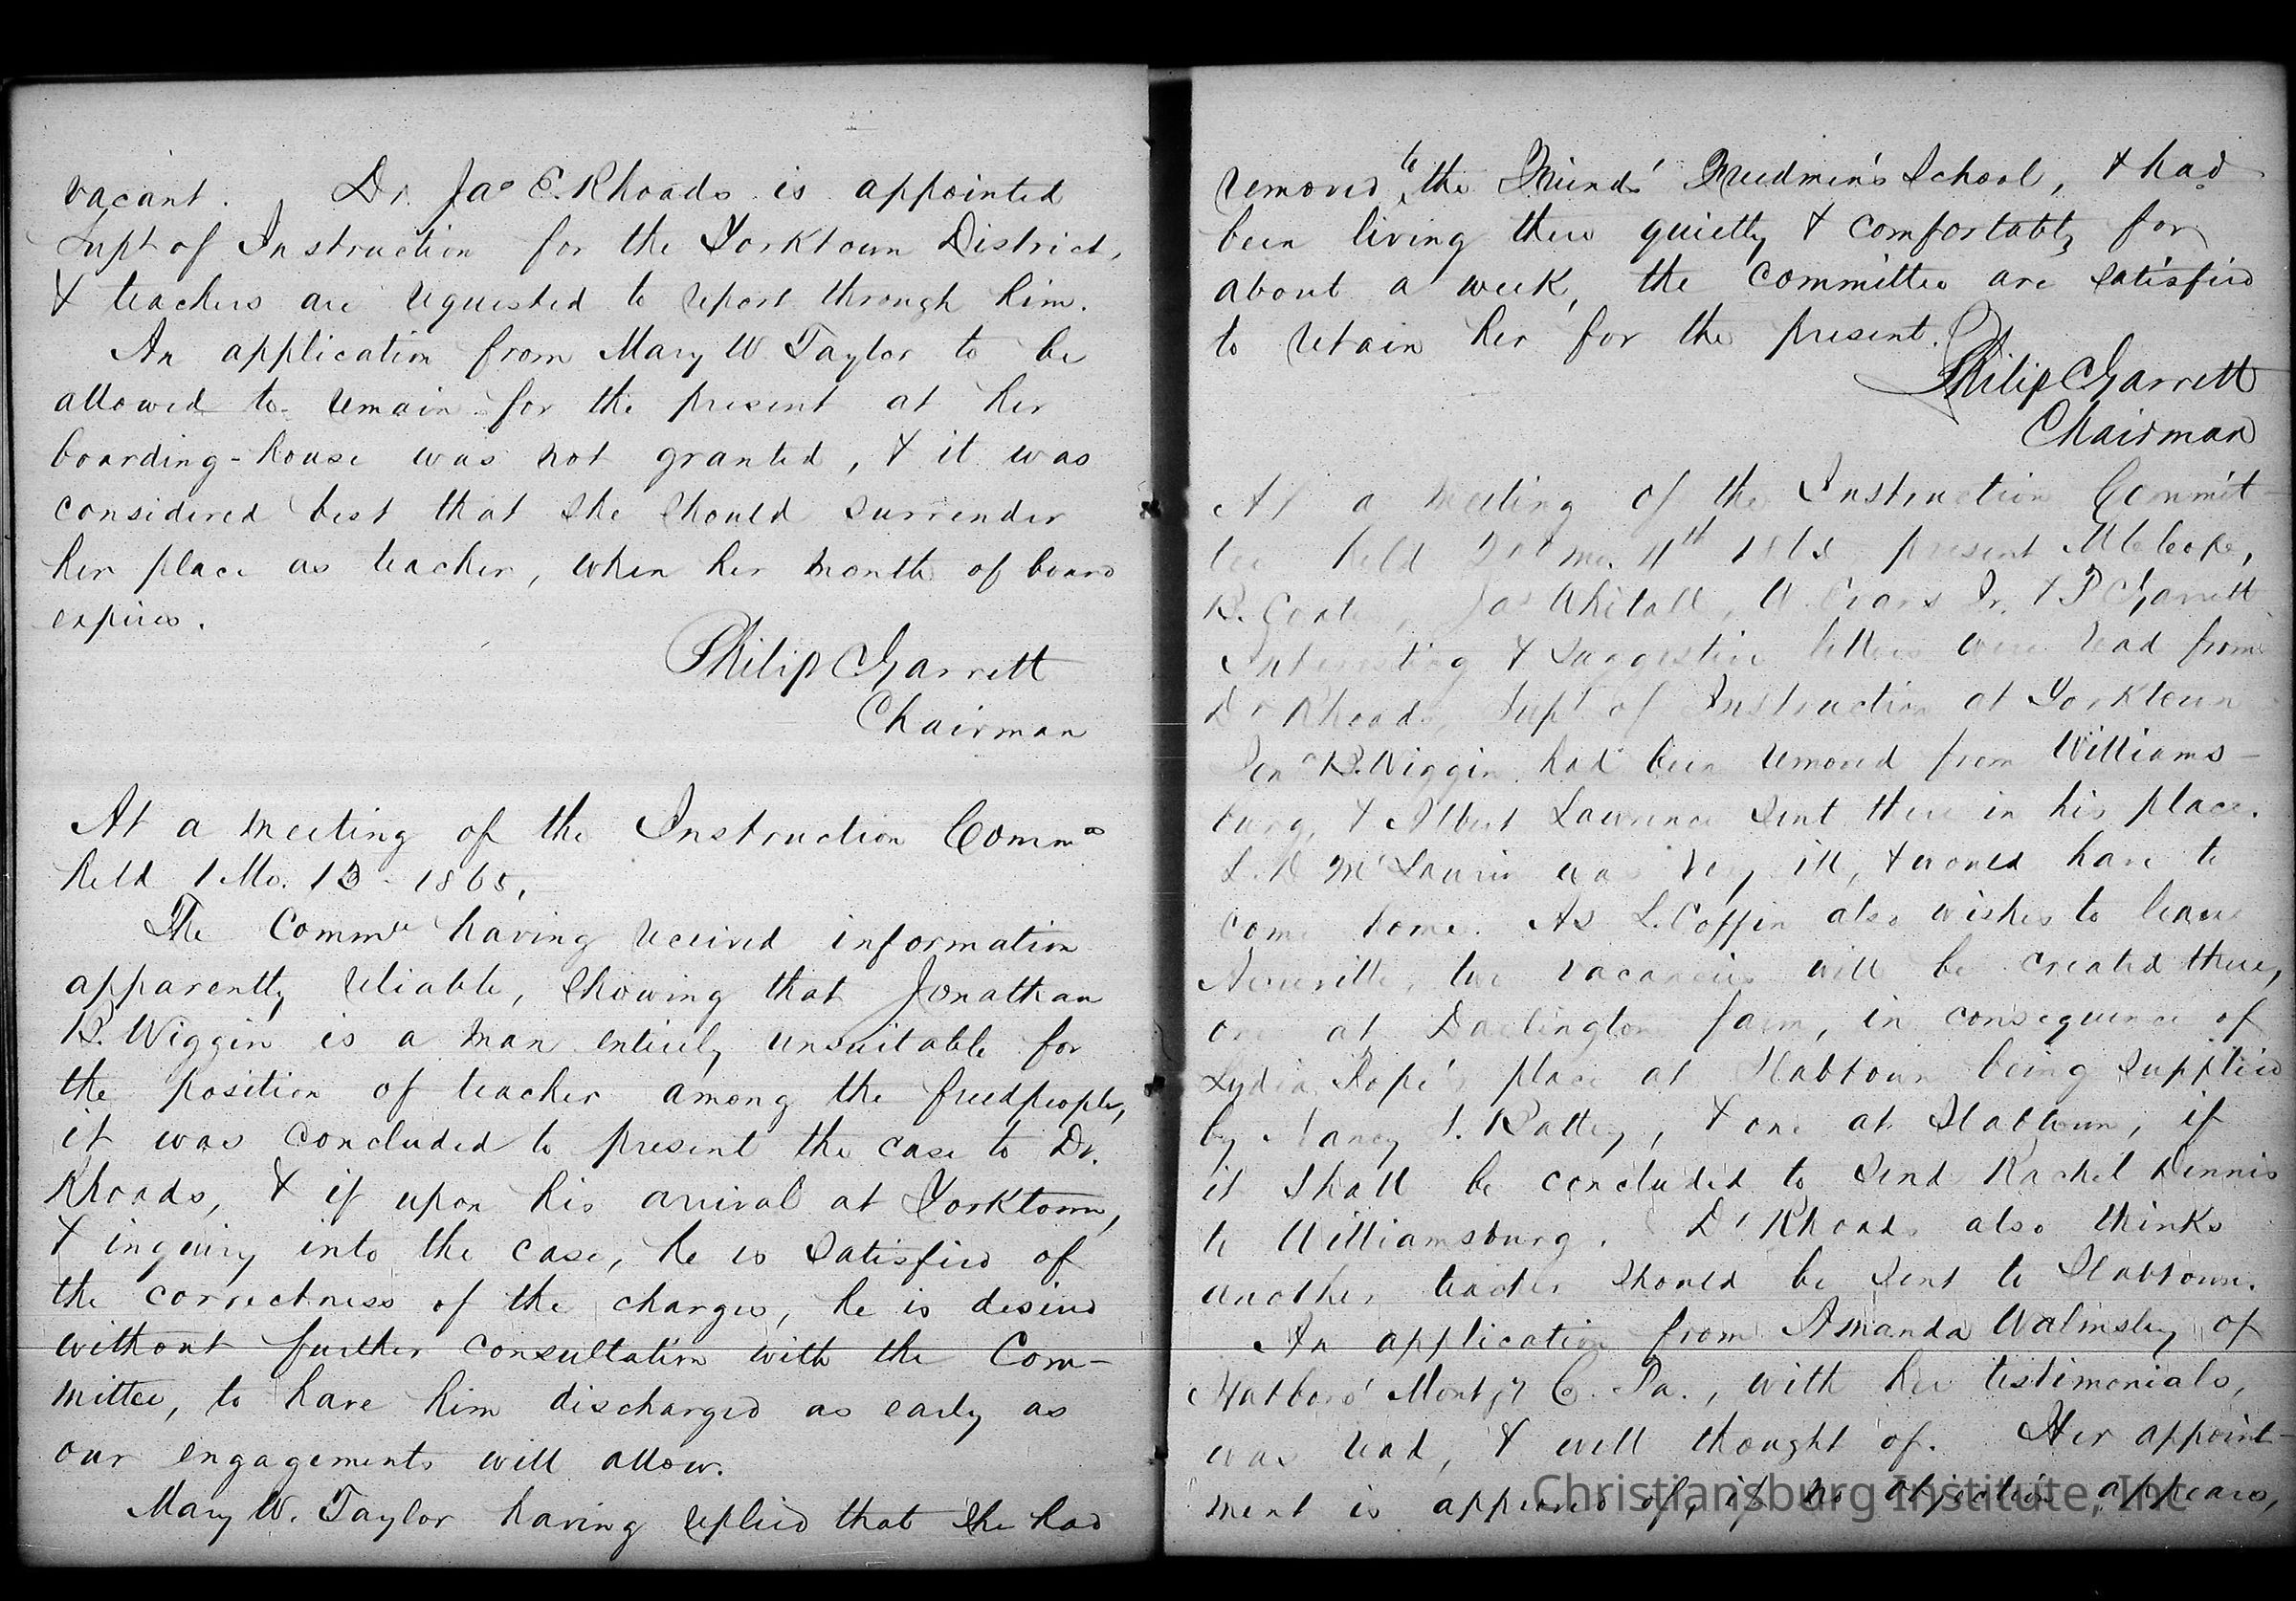 vacant. Dr. Jas E. Rhoads is appointed
Supt of Instruction for the Yorktown District,
& teachers are requested to report through him.
An application from Mary W. Taylor to be
allowed to remain for the present at her
boarding-house was not granted, & it was
considered best that she should surrender
her place as teacher, when her month of board
expires.
Philip C Garrett
Chairman
At a meeting of the Instruction Comme
held 1 Mo. 13 - 1865,
The Commee having received information
apparently reliable, showing that Jonathan
B. Wiggin is a man entirely unsuitable for
the position of teacher among the freedpeople,
it was concluded to present the case to Dr.
Rhoads, & if upon his arrival at Yorktown,
& inquiry into the case, he is satisfied of
the correctness of the charges, he is desired
without further consultation with the Com-
mittee, to have him discharged as early as
our engagements will allow.
Mary W. Taylor having replied that she had
removed to the Friends' Freedmen's School, & had
been living there quietly & comfortably for
about a week, the committee are satisfied
to retain her for the present.
Philip C Garrett
Chairman
At a meeting of the Instruction Commit-
tee held 2nd mo. 4th 1865 present M Cope,
B. Coates, Jas Whitall, W. Evans Jr. & P C Garrett
Interesting & suggestive letters were read from
Dr Rhoads, Supt of Instruction at Yorktown
Jonn B. Wiggin had been removed from Williams-
burg, & Albert Lawrence sent there in his place.
L. D McLaurin was very ill, & would have to
come home. As L. Coffin also wishes to leave
two vacancies will be created there,
one at Darlington farm, in consequence of
Lydia Pope's place at Slabtown being supplied
by Nancy J. Battey, & one at Slabtown, if
it shall be concluded to send Rachel Dennis
to Williamsburg. Dr Rhoads also thinks
another teacher should be sent to Slabtown.
An application from Amanda Walmsley of
Hatboro' Montgy C. Pa., with her testimonials,
was read, & well thought of. Her appoint-
ment is approved of, if no objection appears,
Christiansburg Institute, Inc